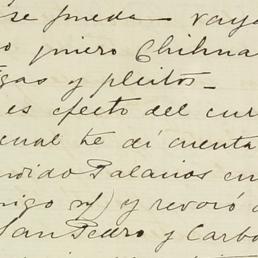 se pueda vaya
quiero Chihua
gas y pleitos_
es efecto del cur
cual te dí cuenta
dido Palacios en
migo ) y revocó
San Pedro y Carbo